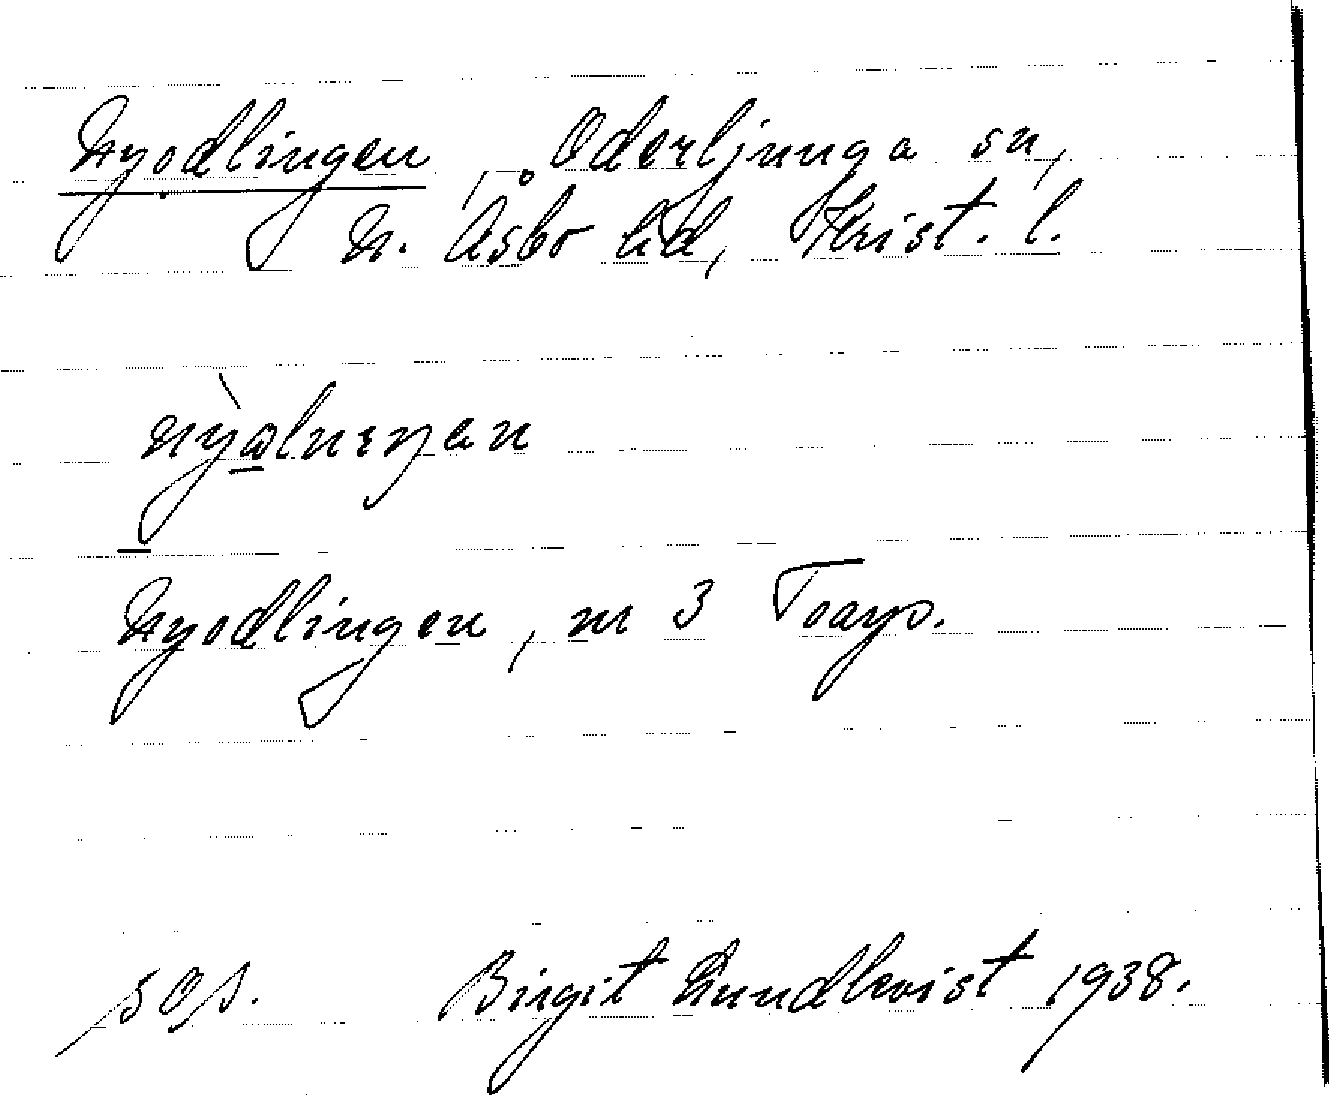 Nyodlingen, Oderljunga sn,
N. Åsbo hd, Krist. l.
nỳalneŋan
Nyodlingen, nr 3 Toarp.
sgs. Birgit Lundkvist 1938.